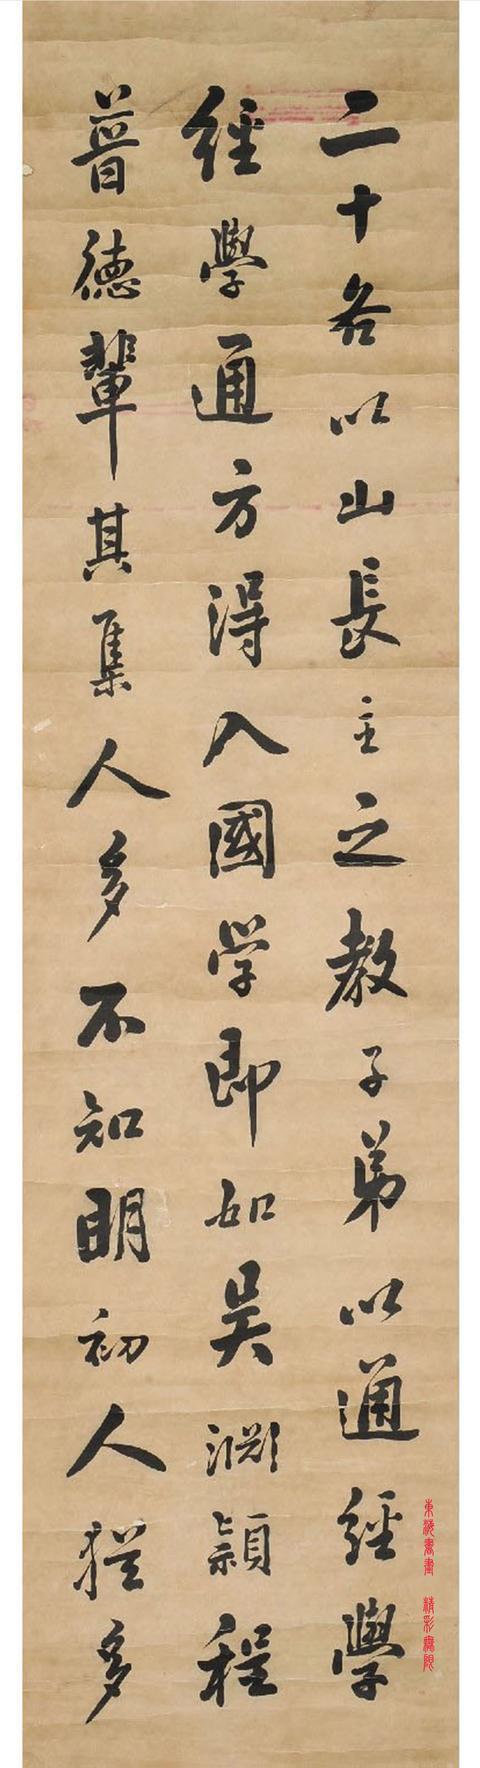 二十各以山長主之教子弟以通經學
經學通方得入國學即如吳淵穎程
普德輩其集人多不知明初人猶多
東海書畫 精彩無限